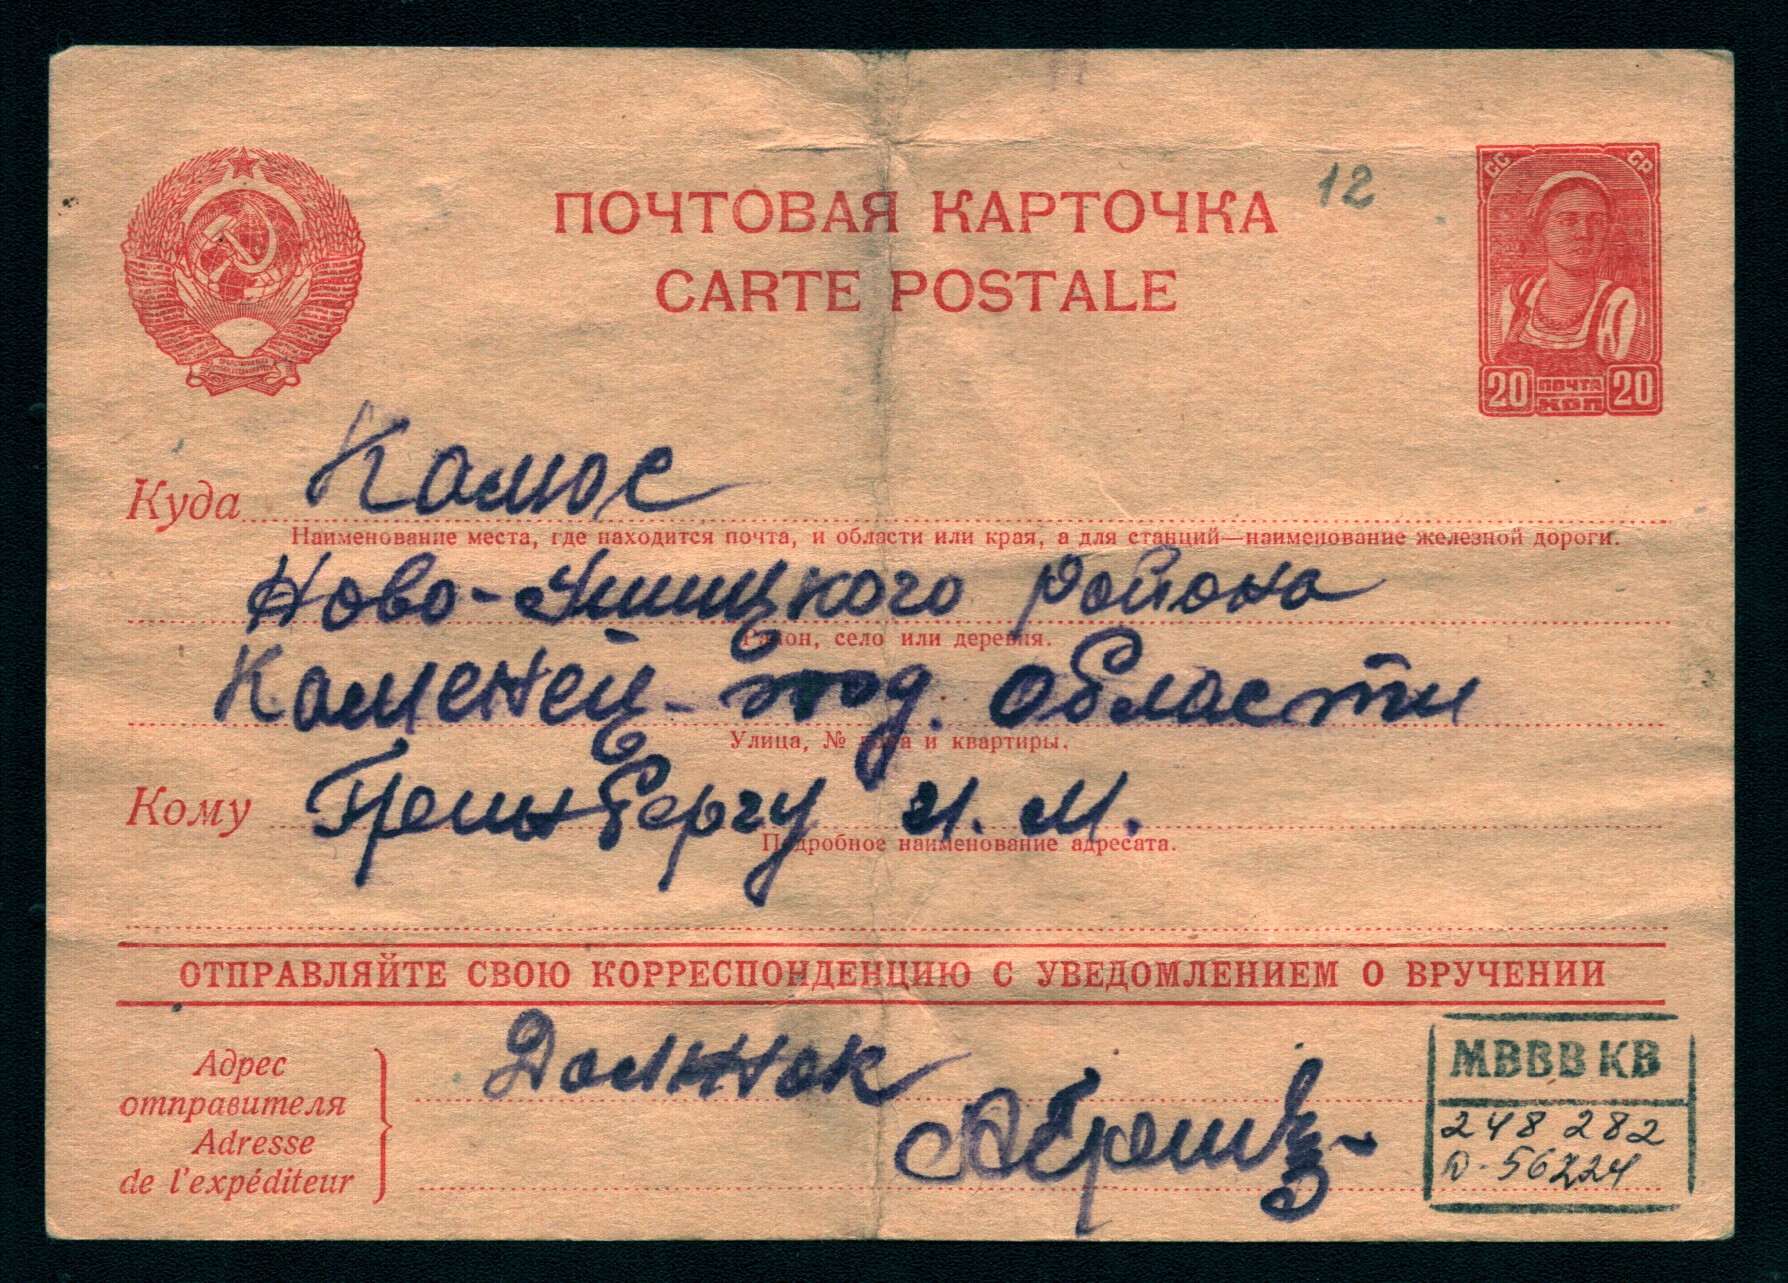 ПОЧТОВАЯ КАРТОЧКА
12
CARTE POSTALE
СС СР
20 ПОЧТА КОП 20
Куда Калюс
Наименование места, где находится почта, и области или края, а для станций—наименование железной дороги.
Ново-Ушицкого района
Район, село или деревня.
Каменец-под. области
Улица, № дома и квартиры.
Кому Гринбергу И. М.
Подробное наименование адресата.
ОТПРАВЛЯЙТЕ СВОЮ КОРРЕСПОНДЕНЦИЮ С УВЕДОМЛЕНИЕМ О ВРУЧЕНИИ
Адрес
отправителя
Adresse
de l'expéditeur
МВВВ КВ
248 282
Д-56224